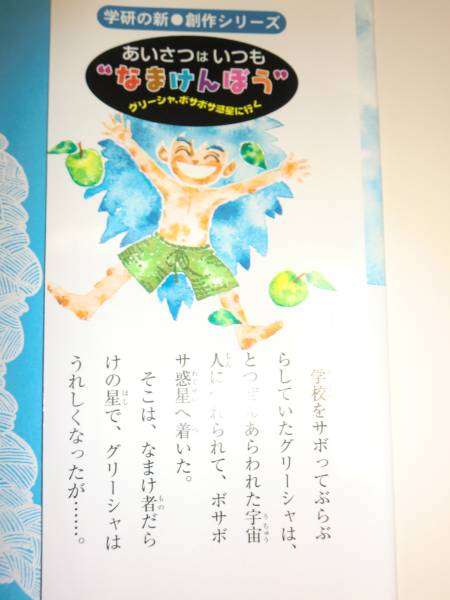 学研の新●創作シリーズ
あいさつは いつも
“なまけんぼう”
グリーシャ、ボサボサ惑星に行く
学校をサボってぶらぶ
らしていたグリーシャは、
とつぜんあらわれた宇宙
人に れられて、ボサボ
サ惑星へ着いた。
そこは、なまけ者だら
けの星で、グリーシャは
うれしくなったが……。